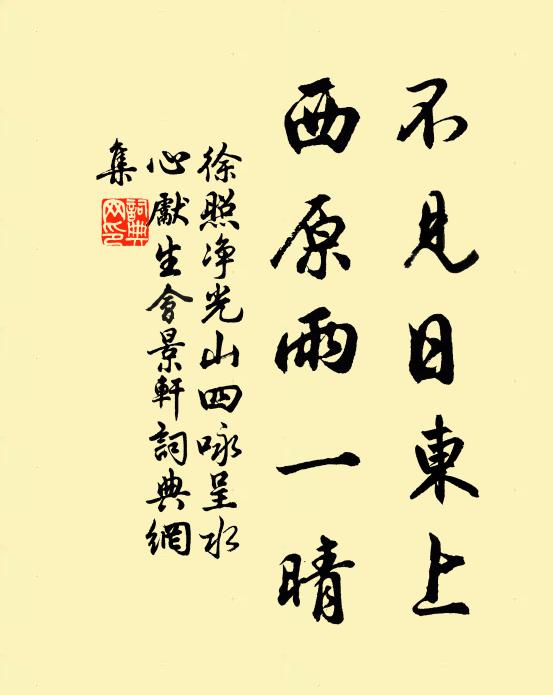 不見日東上
西原雨一晴
徐照净光山四咏呈水
心獻生會景軒詞典網
集
詞典網印